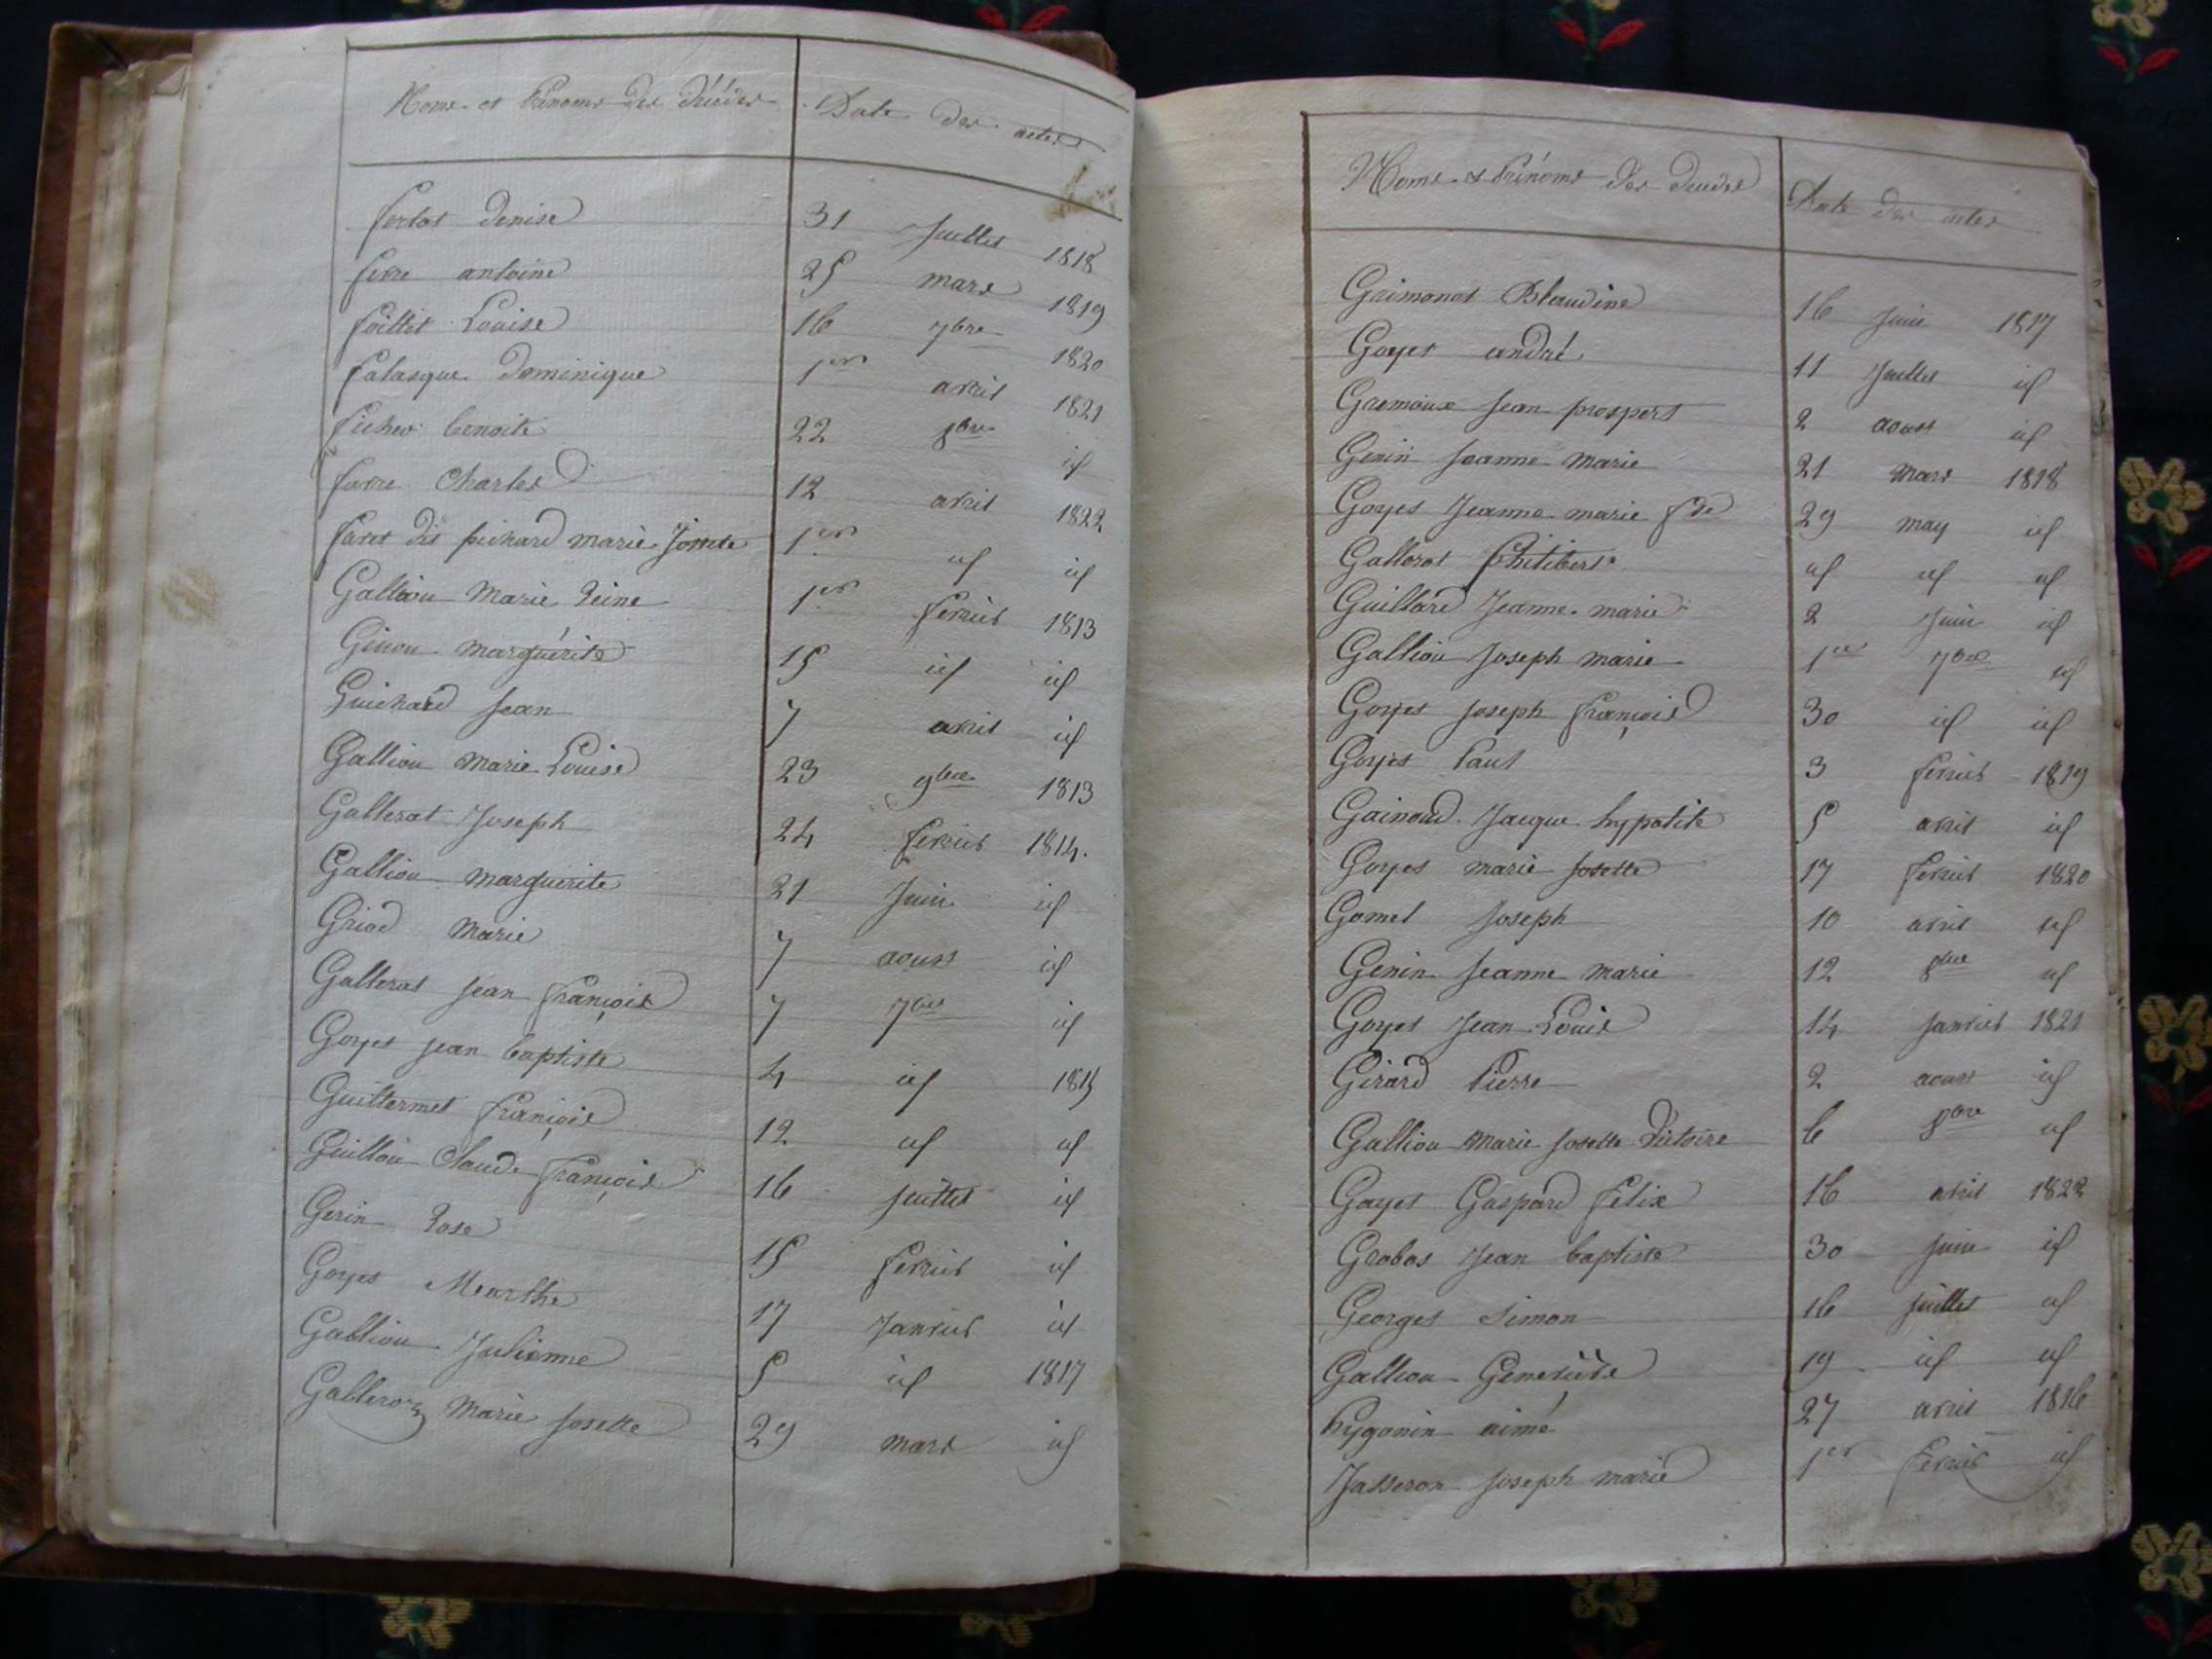 Noms et Prénoms des Décédés Date des actes
fertat denise 31 Juillet 1818
ferre antoine 25 mars 1819
foillet Louise 16 7bre 1820
falasque dominique 1er avril 1821
benoite 22 8bre id
favre Charles 12 avril 1822
favet dit pichard marie Josette 1er id id
Galliou Marie Reine 1er fevrier 1813
Ginou marguérite 15 id id
Guichard Jean 7 avril id
Galliou marie Louise 23 9bre 1813
Gallerat Joseph 24 fevrier 1814.
Galliou marguerite 21 Juin id
Griod Marie 7 aoust id
Gallerat Jean françois 7 7bre id
Goyet jean baptiste 4 id 1815
Guillermet françois 12 id id
Guillou Claude françois 16 juillet id
Genin Rose 15 fevrier id
Goyet Marthe 17 Janvier id
Galliou Julienne 5 id 1817
Galleroz Marie Josette 29 mars id
Noms & Prénoms des décédés Date des actes
Grimonet Claudine 16 Juin 1817
Goyet andré 11 Juillet id
Gremaux Jean prospert 2 aoust id
Genin Jeanne marie 21 Mars 1818
Goyet Jeanne marie fde 29 may id
Gallerat Philibert id id id
Guillard Jeanne marie 2 Juin id
Galliou Joseph marie 1er 7bre id
Goyet Joseph françois 30 id id
Goyet Paul 3 fevrier 1819
Gainoud Jacque hypolite 5 avril id
Goyet marie Josette 17 fevrier 1820
Gomet Joseph 10 avril id
Genin Jeanne marie 12 8bre id
Goyet Jean Louis 14 Janvier 1821
Girard Pierre 2 aoust id
Galliou Marie Josette Victoire 6 8bre id
Goyet Gaspard felix 16 avril 1822
Grobas Jean baptiste 30 Juin id
Georges Simon 16 juillet id
Galliou Genevieve 19 id id
hygonin aimé 27 avril 1816
Jasseron Joseph marie 1er fevrier id